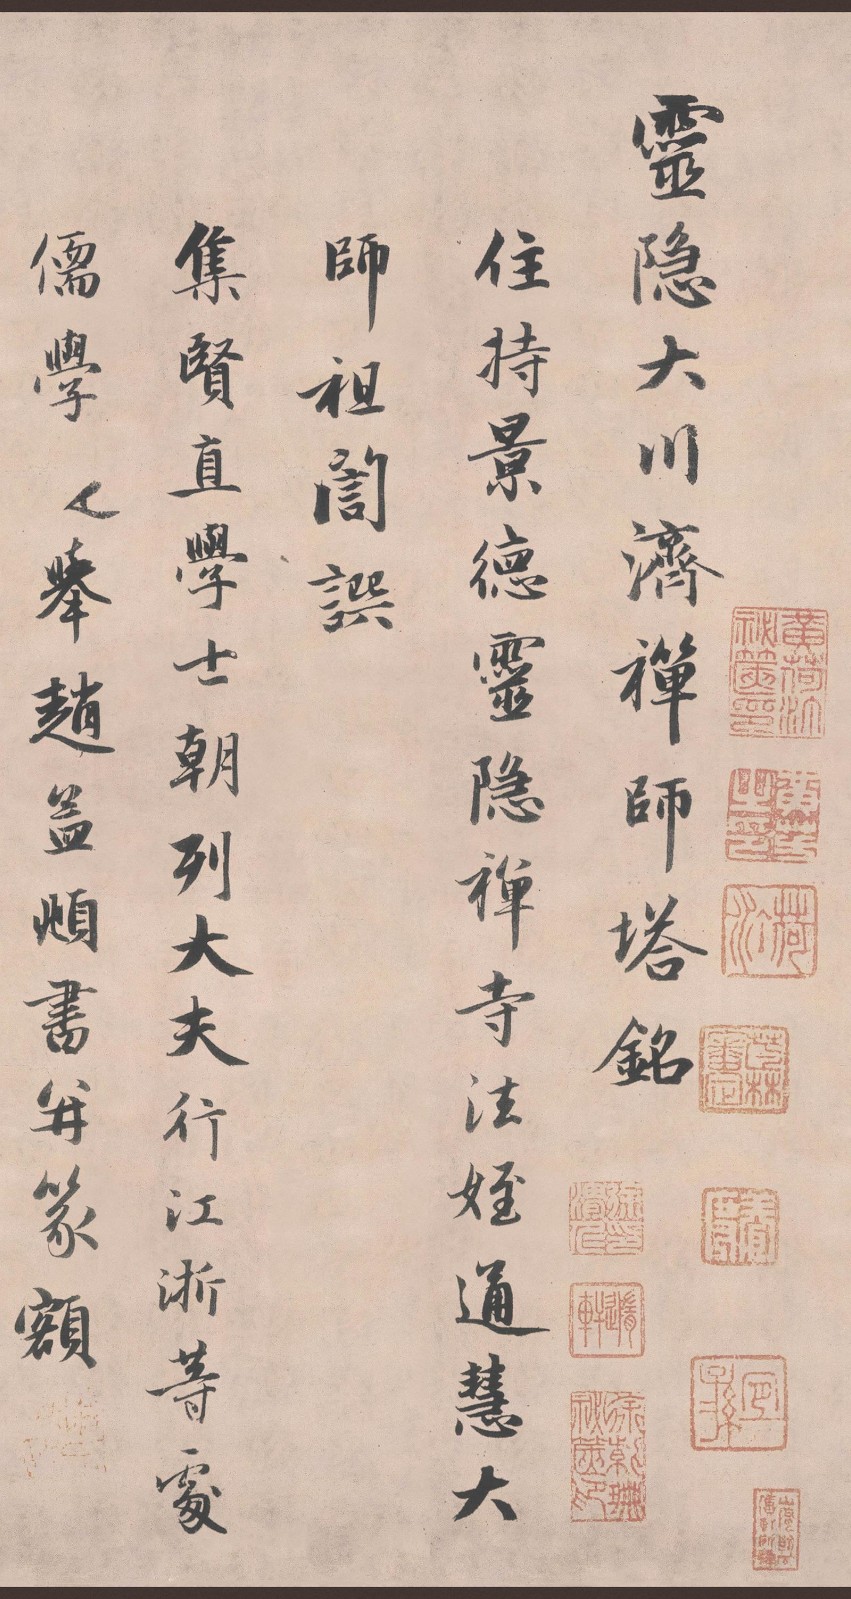 靈隐大川濟禪師塔銘
住持景德靈隐禪寺法姪通慧大
師祖誾譔
集賢直學士朝列大夫行江浙等處
儒學提舉趙孟頫書并篆額